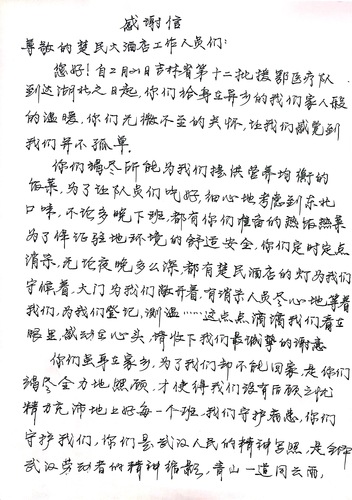 感谢信
尊敬的楚民大酒店工作人员们:
您好!自2月21日吉林省第十二批援鄂医疗队
到达湖北之日起,你们给身在异乡的我们家人般
的温暖,你们无微不至的关怀,让我们感觉到
我们并不孤单。
你们竭尽所能为我们提供营养均衡的
饭菜,为了让队员们吃好,细心地考虑到东北
口味,不论多晚下班,都有你们准备的热饭热菜
为了保证驻地环境的舒适安全,你们定时定点
消杀,无论夜晚多么深,都有楚民酒店的灯为我们
守候着,大门为我们敞开着,有消杀人员尽心地等着
我们,为我们登记,测温……这点点滴滴我们看在
眼里,感动在心头,请收下我们最诚挚的谢意
你们虽身在家乡,为了我们却不能回家,是你们
竭尽全力地照顾,才使得我们没有后顾之忧
精力充沛地上好每一个班,我们守护病患,你们
守护我们,你们是武汉人民的精神写照,是全体
武汉劳动者的精神缩影,青山一道同云雨,